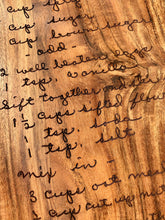 cup
cup sugar
cup brown sugar
- add -
2 well beaten eggs
1 tsp. vanilla
Sift together
1 1/2 cups sifted flour
1 tsp. soda
1 tsp. salt
mix in -
3 cups oat
cup cut up